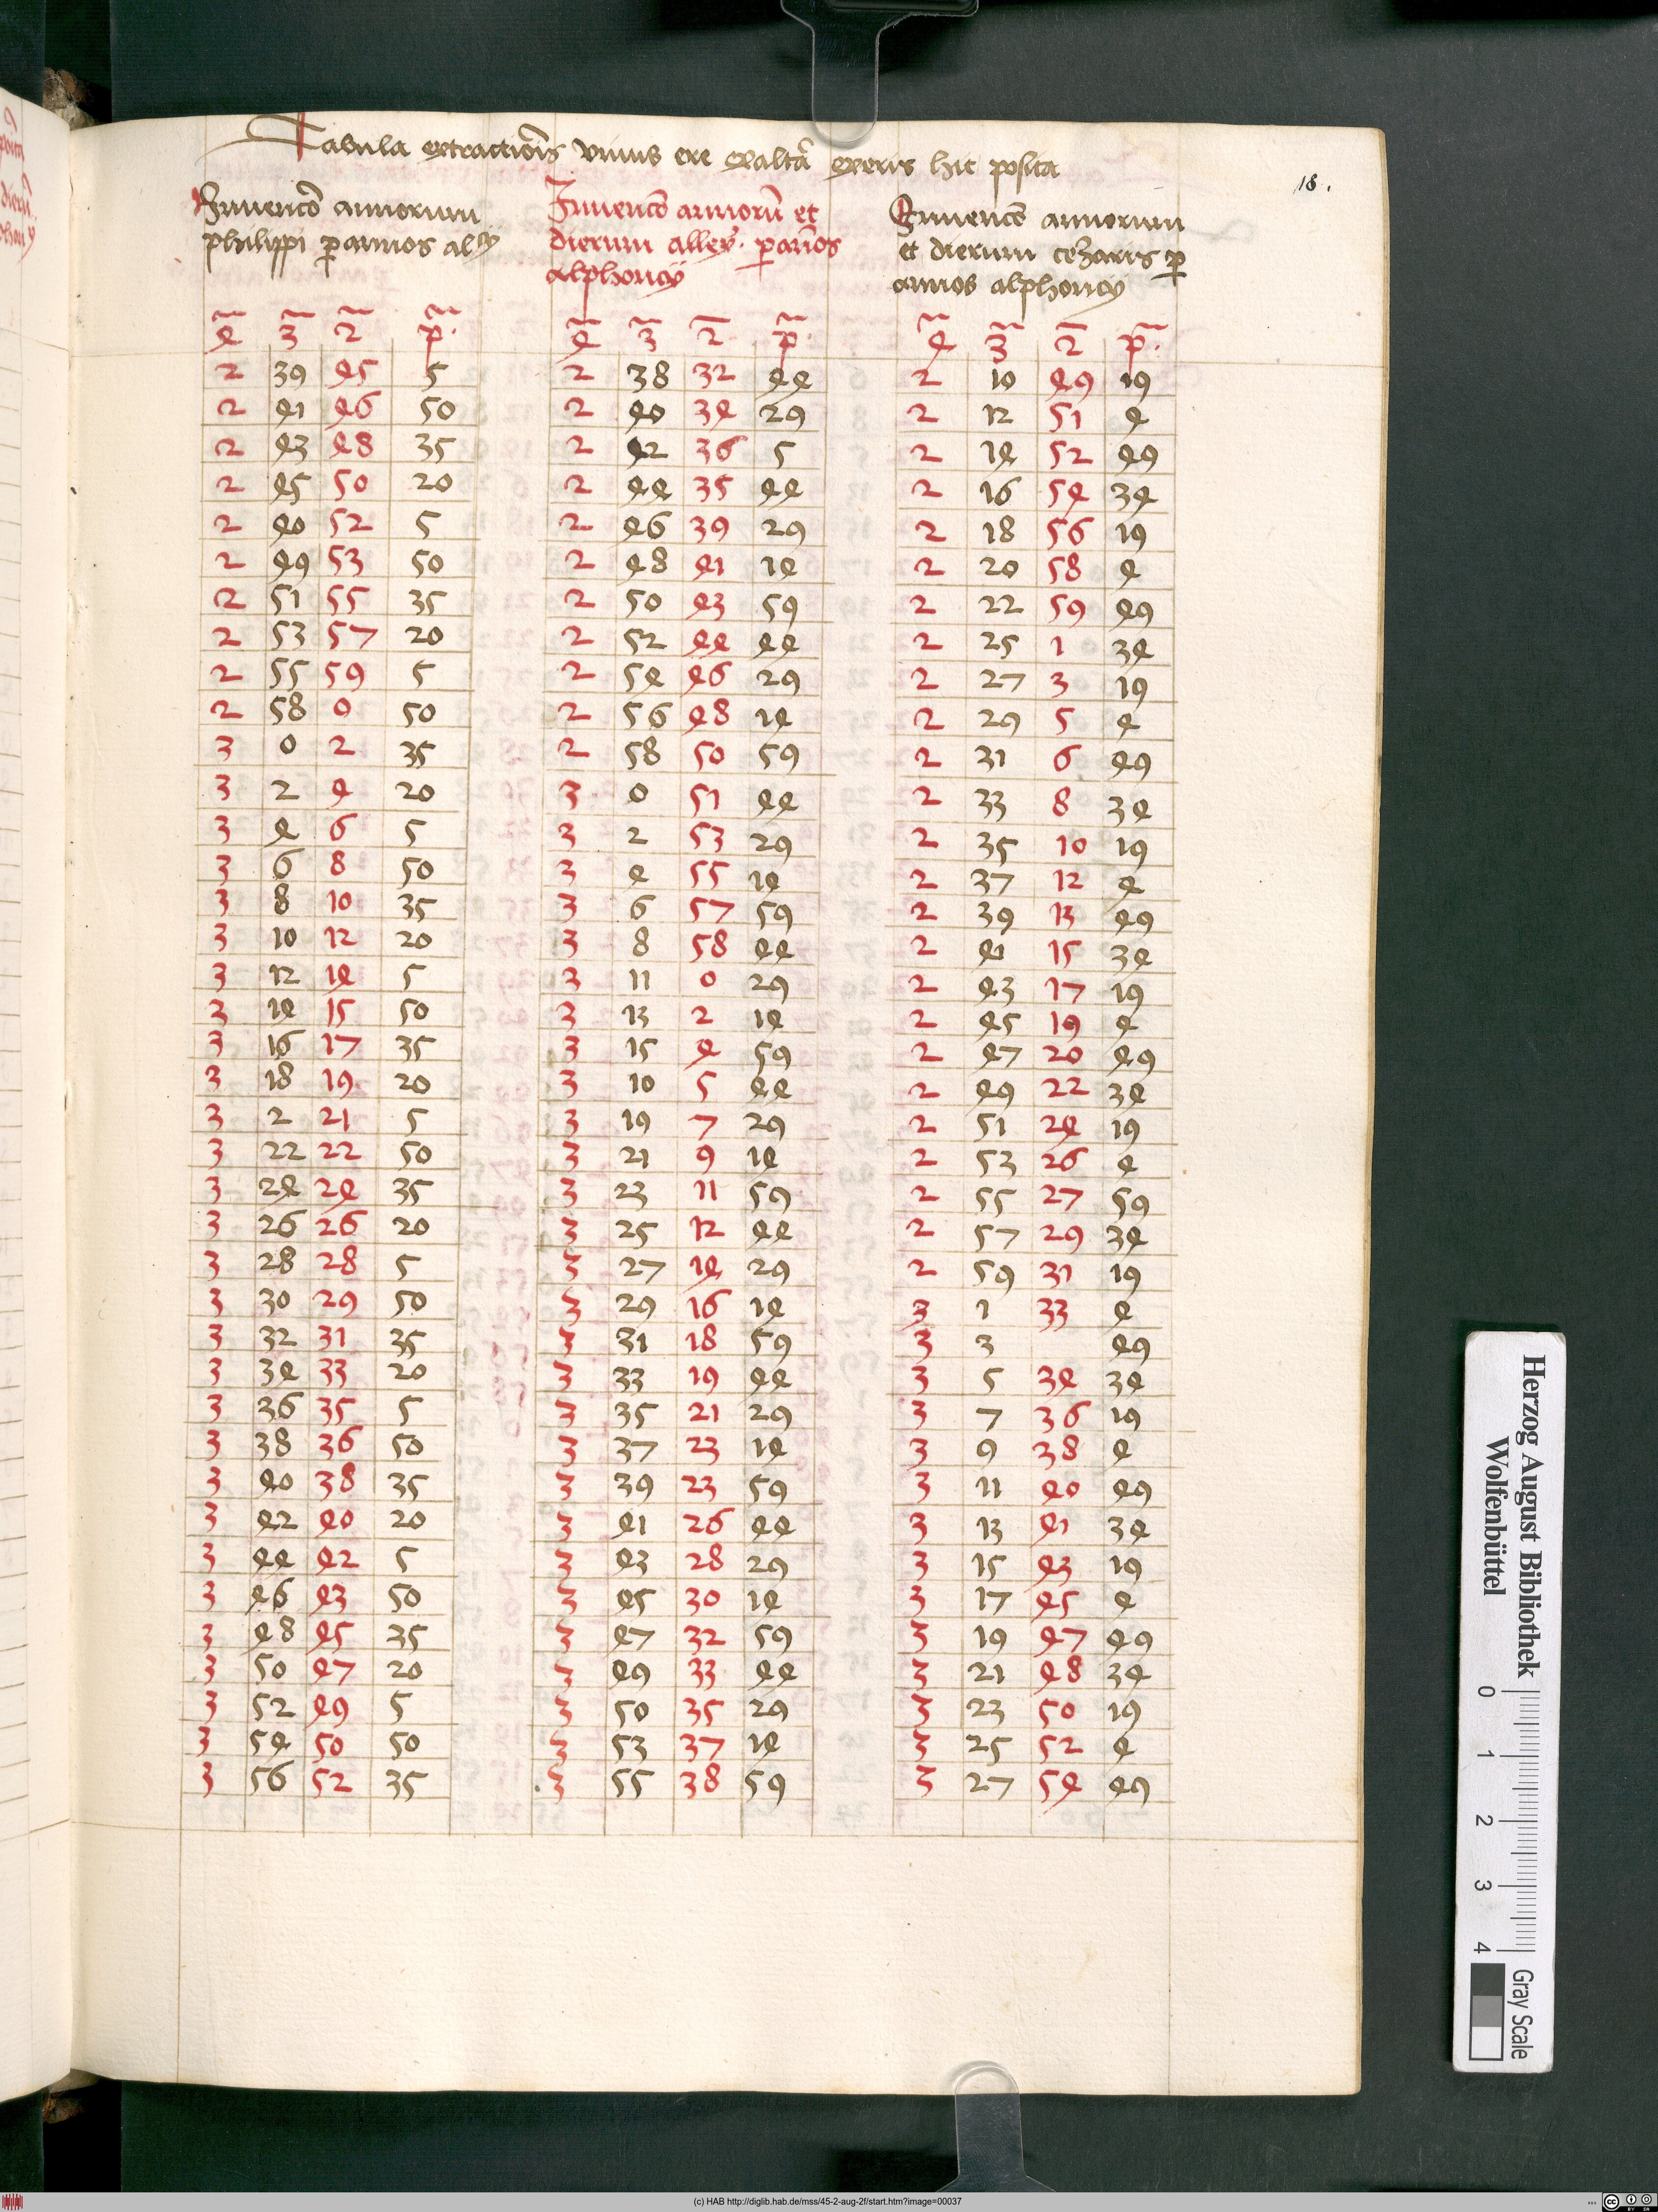 Tabula extractiois unius ere exalta exeris hic posita
18.
Invencio annorum
philippi p annos
Invencio annoru et
dierum p annos
alphoncij
Invencio annorum
et dierum cezaris p
annos alphoncij
4 3 2 p. 4 3 2 p. 4 3 2 p.
2 39 45 5 2 38 32 44 2 10 49 19
2 41 46 50 2 40 34 29 2 12 51 4
2 43 48 35 2 42 36 5 2 14 52 49
2 45 50 20 2 44 35 44 2 16 54 34
2 40 52 5 2 46 39 29 2 18 56 19
2 49 53 50 2 48 41 14 2 20 58 4
2 51 55 35 2 50 43 59 2 22 59 49
2 53 57 20 2 52 44 44 2 25 1 34
2 55 59 5 2 54 46 29 2 27 3 19
2 58 0 50 2 56 48 14 2 29 5 4
3 0 2 35 2 58 50 59 2 31 6 49
3 2 4 20 3 0 51 44 2 33 8 34
3 4 6 5 3 2 53 29 2 35 10 19
3 6 8 50 3 4 55 14 2 37 12 4
3 8 10 35 3 6 57 59 2 39 13 49
3 10 12 20 3 8 58 44 2 41 15 34
3 12 14 5 3 11 0 29 2 43 17 19
3 14 15 50 3 13 2 14 2 45 19 4
3 16 17 35 3 15 4 59 2 47 20 49
3 18 19 20 3 10 5 44 2 49 22 34
3 2 21 5 3 19 7 29 2 51 24 19
3 22 22 50 3 21 9 14 2 53 26 4
3 24 24 35 3 23 11 59 2 55 27 59
3 26 26 20 3 25 12 44 2 57 29 34
3 28 28 5 3 27 14 29 2 59 31 19
3 30 29 50 3 29 16 14 3 1 33 4
3 32 31 35 3 31 18 59 3 3 49
3 34 33 20 3 33 19 44 3 5 34 34
3 36 35 5 3 35 21 29 3 7 36 19
3 38 36 50 3 37 23 14 3 9 38 4
3 40 38 35 3 39 23 59 3 11 40 49
3 42 40 20 3 41 26 44 3 13 41 34
3 44 42 5 3 43 28 29 3 15 43 19
3 46 43 50 3 45 30 14 3 17 45 4
3 48 45 35 3 47 32 59 3 19 47 49
3 50 47 20 3 49 33 44 3 21 48 34
3 52 49 5 3 50 35 29 3 23 50 19
3 54 50 50 3 53 37 14 3 25 52 4
3 56 52 35 3 55 38 59 3 27 54 49
Herzog August Bibliothek
Wolfenbüttel
0 1 2 3 4
Gray Scale
(c) HAB http://diglib.hab.de/mss/45-2-aug-2f/start.htm?image=00037